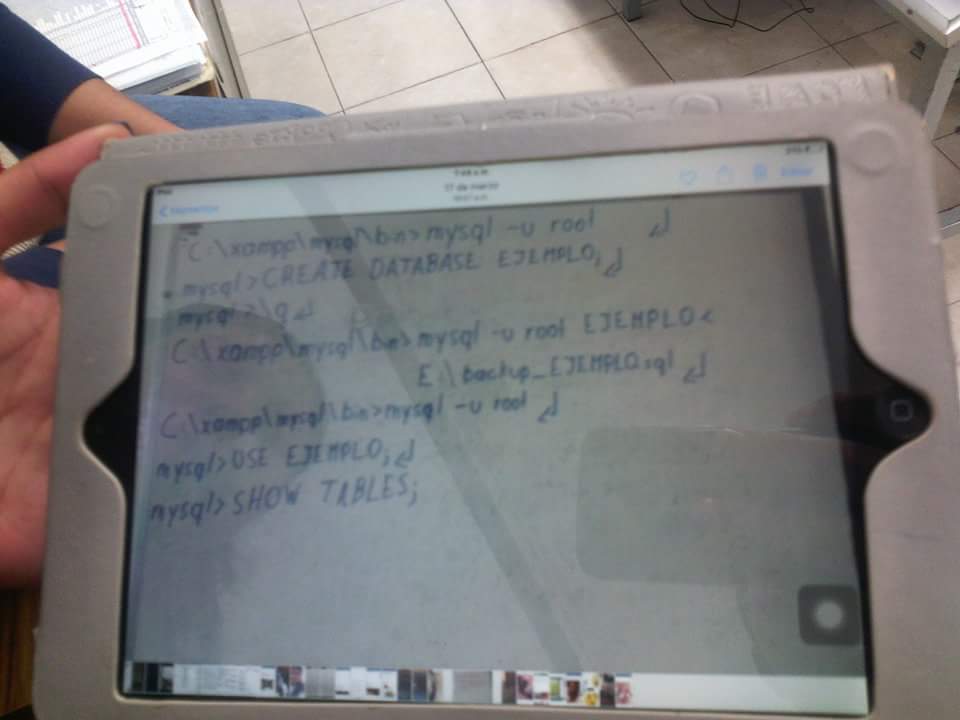 17 de marzo
Editar
C:\xampp\mysql\bin>mysql -u root ↵
mysql>CREATE DATABASE EJEMPLO; ↵
mysql>\q ↵
C:\xampp\mysql\bin>mysql -u root EJEMPLO <
E:\backup_EJEMPLO.sql ↵
C:\xampp\mysql\bin>mysql -u root ↵
mysql>USE EJEMPLO; ↵
mysql>SHOW TABLES;